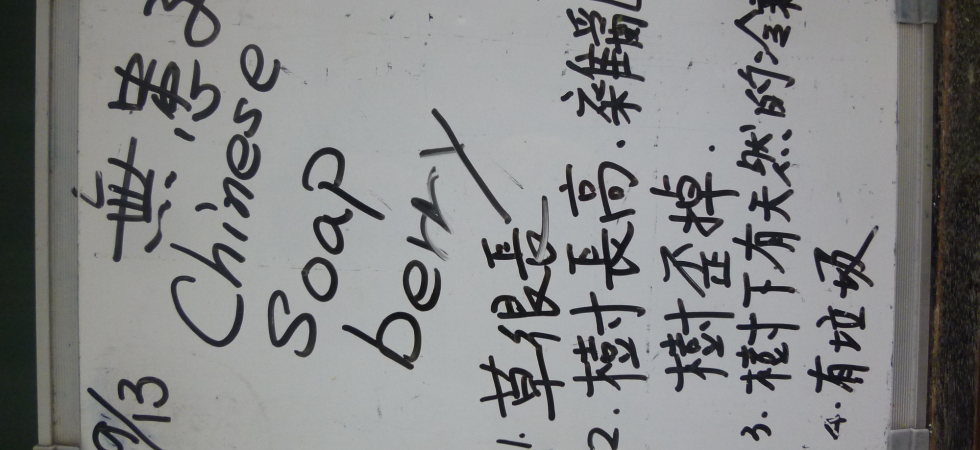 9/13 無患
Chinese
Soap
berry
1. 草很長
2. 樹長高.
樹歪掉.
3. 樹下有天然的
4. 有垃圾